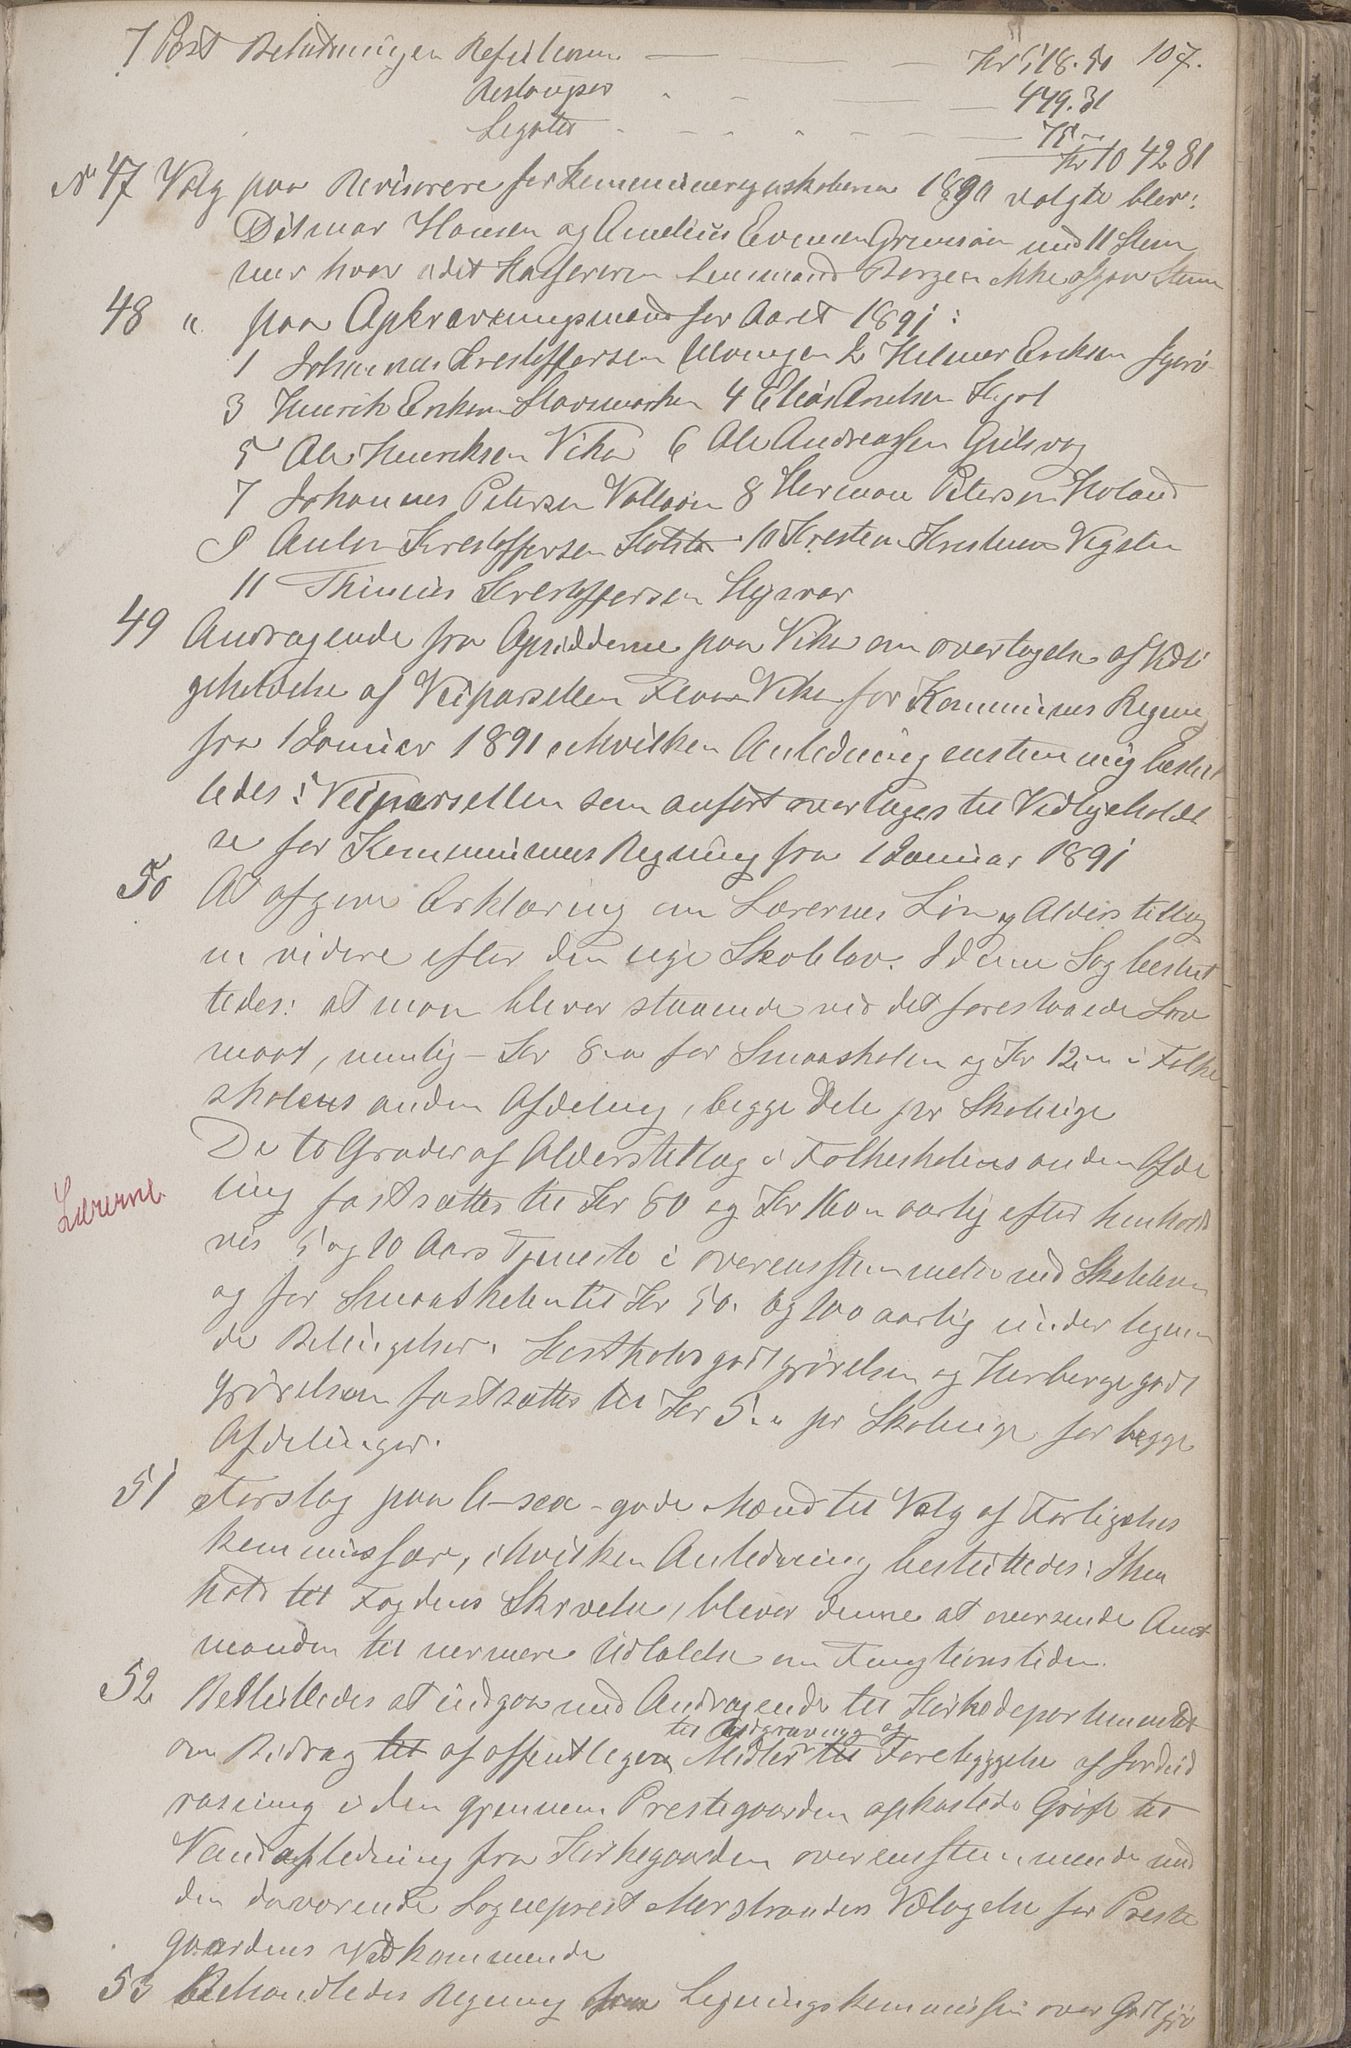 7 Post Betalningen Refusioner — — Kr 518.50 107.
Restanser — 449.31
Legater — 75 "
Kr 1042 81
No 47 Valg paa Revisorere for Kommuneregnskaberne 1890 valgte blev:
Ditmar Hansen og Amelius Evensen Grønsvin med 11 Stem
mer hver idet Kassereren Lensmand Borgen ikke afgav Stemme
48 " paa Opkrævningsmænd for Aaret 1891:
1 Johannes Kristoffersen 2 Hilmer Eriksen
3 Henrik Eriksen Stavnmarken 4 Elias Arntsen
5 Ole Henriksen Vika 6 Ole Andreassen Gulsvaag
7 Johannes Petersen 8 Herman Petersen Husland
9 Anton Kristoffersen 10 Kristen Kristensen
11 Kristoffersen
49 Andragende fra Opsidderne paa Vika om overtagelse af Vedli
geholdelse af Veiparsellen Vika for Kommunens Regning
fra 1 Januar 1891 i Hvilken Anledning enstemmig beslut
tedes: Veiparsellen som anført overtages til Vedligeholdel
se for Kommunens Regning fra 1 Januar 1891
50 At afgive Erklæring om Lærernes Løn og Alderstillæg
m videre efter den nye Skolelov. I denne Sag beslut
tedes: at man bliver staaende ved det foreslaaede Løn
maal, nemlig – Kr 8 " for Smaaskolen og Kr 12 " i Folke-
skolens anden Afdeling, begge Dele pr Skoleuge
De to Grader af Alderstillæg i Folkeskolens anden Afde
ling fastsættes til Kr 80 og Kr 160 " aarlig efter henholds
vis 5 og 10 Aars Tjeneste i overensstemmelse med Skoleloven
og for Smaaskolen til Kr 50. og 100 aarlig under lignen
de Betingelser. Kostholdsgodtgjørelsen og Herbergegodt
gjørelsen fastsættes til Kr 5. " pr Skoleuge for begge
Afdelinger.
Lærerne
51 Forslag paa 6 – sex – gode Mænd til Valg af Forligelses
kommissære, i Hvilken Anledning besluttedes: I Hen
hold til Fogdens Skrivelse, bliver denne at oversende Amt
manden til nærmere Udtalelse om Fungtionstiden.
52 Besluttedes at indgaa med Andragende til Kirkedepartementet
til Opgravning og
om Bidrag til af offentligen Midler til Forebyggelse af Jordud
rasning i den gjennem Prestegaarden opkastede Grøft til
Vandafledning fra Kirkegaarden overensstemmende med
den daværende Sogneprest Marstranders Vedtagelse for Preste
gaardens Vedkommende
53 Behandledes Regning fra Ligningskommission over Godtgjø